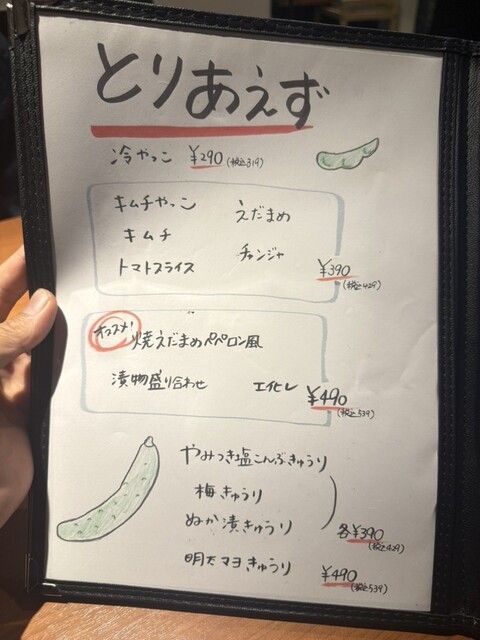 とりあえず
冷やっこ ¥290 (税込319)
キムチやっこ えだまめ
キムチ チャンジャ
トマトスライス ¥390
(税込429)
オススメ! 焼えだまめペペロン風
漬物盛り合わせ エイヒレ ¥490
(税込539)
やみつき塩こんぶきゅうり
梅きゅうり
ぬか漬きゅうり 各¥390
(税込429)
明太マヨきゅうり ¥490
(税込539)